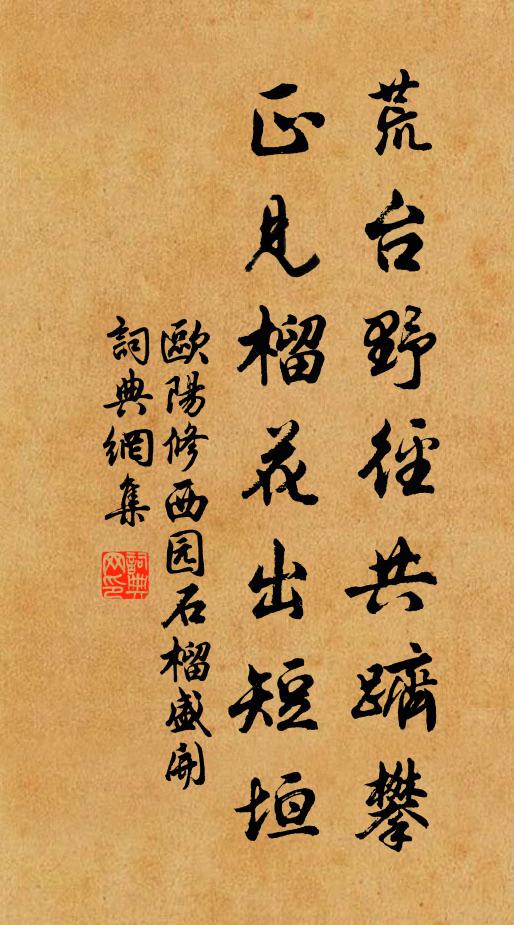 荒台野径共躋攀
正见榴花出短垣
歐陽修西园石榴盛開
詞典網集
詞典网印